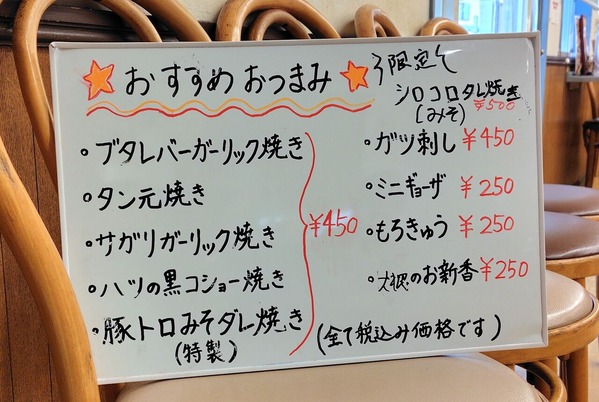 おすすめ おつまみ
・ブタレバーガーリック焼き
・タン元焼き
・サガリガーリック焼き
・ハツの黒コショー焼き
・豚トロみそダレー焼き
(特製)
¥450
限定
シロコロタレ焼き
(みそ) ¥500
・ガツ刺し ¥450
・ミニギョーザ ¥250
・もろきゅう ¥250
・大根のお新香 ¥250
(全て税込み価格です)